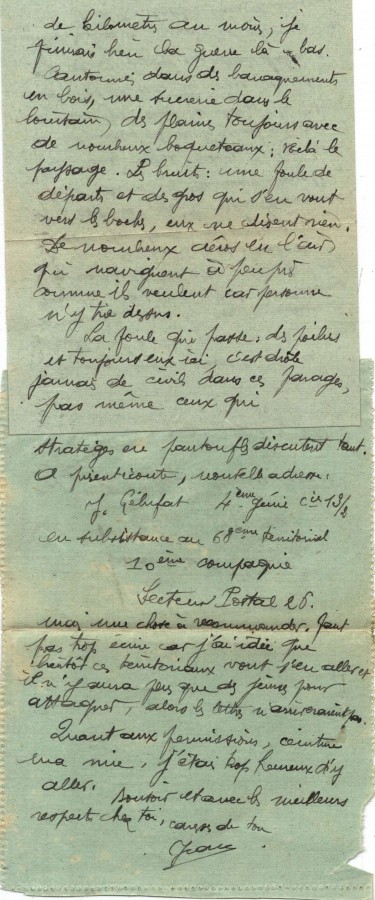 de kilomètres au moins, je
finirais bien la guerre là-bas.
Cantonnés dans des baraquements
en bois, une sucrerie dans le
lointain, des plaines toujours avec
de nombreux boqueteaux ; voilà le
paysage. Les bruits : une foule de
départs et des gros qui s'en vont
vers les boches, eux ne disent rien.
De nombreux aéros en l'air
qui naviguent à peu près
comme ils veulent car personne
n'y tire dessus.
La foule qui passe : des poilus
et toujours eux ici, c'est drôle
jamais de civils dans ces parages,
pas même ceux qui
stratèges en pantoufles discutent tant.
A présent écoute, nouvelle adresse.
J. Gélifat 4ème Génie Cie 13/2
en subsistance au 68ème territorial
10ème compagnie
Secteur Postal 26.
mais une chose à recommander. Faut
pas trop écrire car j'ai idée que
bientôt ces territoriaux vont s'en aller et
il n'y aura plus que des jeunes pour
attaquer, alors les lettres n'arriveraient pas.
Quant aux permissions, ceinture
ma mie, j'étais trop heureux d'y
aller.
Bonsoir et avec les meilleurs
respects chez toi, caresses de ton
Jean